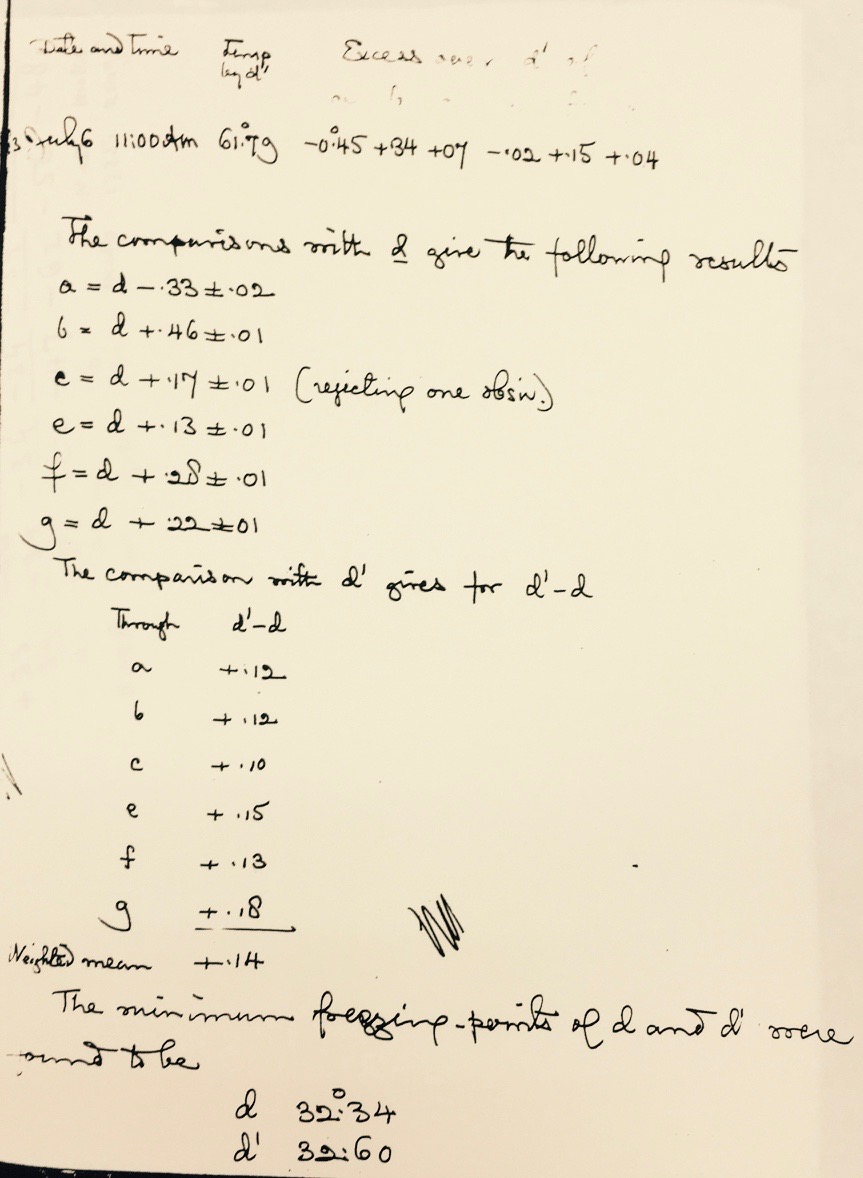 Date and Time Temp Excess over d' of
by d'
July 6 11:00 AM 61°.79 -0°.45 +34 +07 -.02 +.15 +.04
The comparisons with d give the following results
a = d -.33 ± .02
b = d +.46 ± .01
c = d +.17 ± .01 (rejecting one obsn.)
e = d +.13 ± .01
f = d + .28 ± .01
g = d + .22 ± 01
The comparison with d' gives for d'-d
Through d'-d
a +.12
b +.12
c +.10
e +.15
f +.13
g +.18
Weighted mean +.14
The minimum freezing-points of d and d' were
ound to be
d 32°.34
d' 32.60